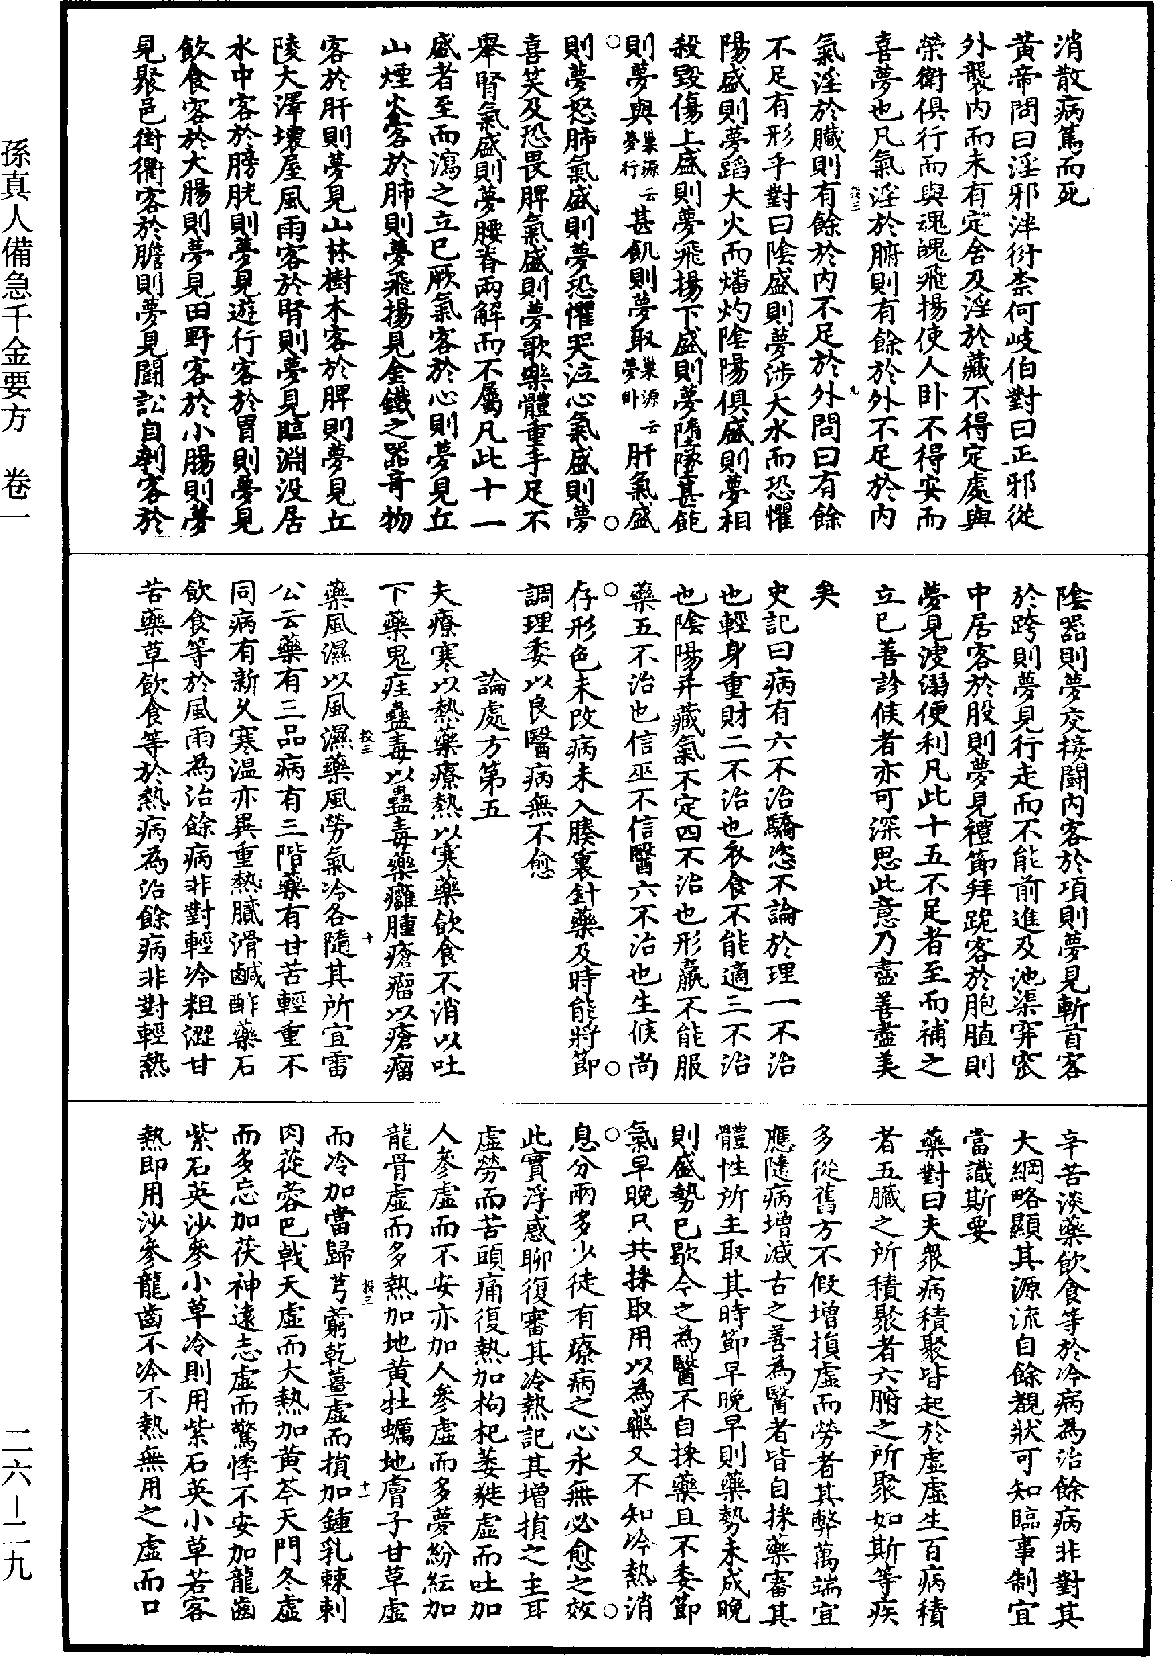 消散病篤而死
黃帝問曰淫邪泮衍柰何岐伯對曰正邪從
外襲內而未有定舍及淫於藏不得定處與
榮衛俱行而與魂魄飛揚使人卧不得安而
喜夢也凡氣淫於腑則有餘於外不足於內
氣淫於臟則有餘於內不足於外問曰有餘
不足有形乎對曰陰盛則夢涉大水而恐懼
陽盛則夢蹈大火而燔灼陰陽俱盛則夢相
殺毀傷上盛則夢飛揚下盛則夢墮墜甚飽
則夢與巢源云夢行甚飢則夢取巢源云夢卧肝氣盛
則夢怒肺氣盛則夢恐懼哭泣心氣盛則夢
喜笑及恐畏脾氣盛則夢歌樂體重手足不
舉腎氣盛則夢腰脊兩解而不屬凡此十一
盛者至而瀉之立已厥氣客於心則夢見丘
山煙火客於肺則夢飛揚見金鐵之器奇物
客於肝則夢見山林樹木客於脾則夢見丘
陵大澤壞屋風雨客於腎則夢見臨淵沒居
水中客於膀胱則夢見遊行客於胃則夢見
飲食客於大腸則夢見田野客於小腸則夢
見聚邑街衢客於膽則夢見鬪訟自刳客於
陰器則夢交接鬪內客於項則夢見斬首客
於跨則夢見行走而不能前進及池渠穽窖
中居客於股則夢見禮節拜跪客於胞脜則
夢見洩溺便利凡此十五不足者至而補之
立已善診候者亦可深思此意乃盡善盡美
矣
史記曰病有六不治驕恣不論於理一不治
也輕身重財二不治也衣食不能適三不治
也陰陽并藏氣不定四不治也形羸不能服
藥五不治也信巫不信醫六不治也生候尚
存形色未改病未入腠裏針藥及時能將節
調理委以良醫病無不愈
論處方第五
夫療寒以熱藥療熱以寒藥飲食不消以吐
下藥鬼疰蠱毒以蠱毒藥癰腫瘡瘤以瘡瘤
藥風濕以風濕藥風勞氣冷各隨其所宜雷
公云藥有三品病有三階藥有甘苦輕重不
同病有新久寒温亦異重熱膩滑鹹酢藥石
飲食等於風雨為治餘病非對輕冷粗澀甘
苦藥草飲食等於熱病為治餘病非對輕熱
辛苦淡藥飲食等於冷病為治餘病非對其
大綱略顯其源流自餘覩狀可知臨事制宜
當識斯要
藥對曰夫眾病積聚皆起於虛虛生百病積
者五臟之所積聚者六腑之所聚如斯等疾
多從舊方不假增損虛而勞者其弊萬端宜
應隨病增減古之善為醫者皆自採藥審其
體性所主取其時節早晚早則藥勢未成晚
則盛勢已歇今之為醫不自採藥且不委節
氣早晚只共採取用以為藥又不知冷熱消
息分兩多少徒有療病之心永無必愈之效
此實浮惑聊復審其冷熱記其增損之主耳
虛勞而苦頭痛復熱加枸杞萎蕤虛而吐加
人參虛而不安亦加人參虛而多夢紛紜加
龍骨虛而多熱加地黃牡蠣地膚子甘草虛
而冷加當歸芎藭乾薑虛而損加鍾乳棘刺
肉蓯蓉巴戟天虛而大熱加黃芩天門冬虛
而多忘加茯神遠志虛而驚悸不安加龍齒
紫石英沙參小草冷則用紫石英小草若客
熱即用沙參龍齒不冷不熱無用之虛而口
孫真人備急千金要方 卷一
二六—二九